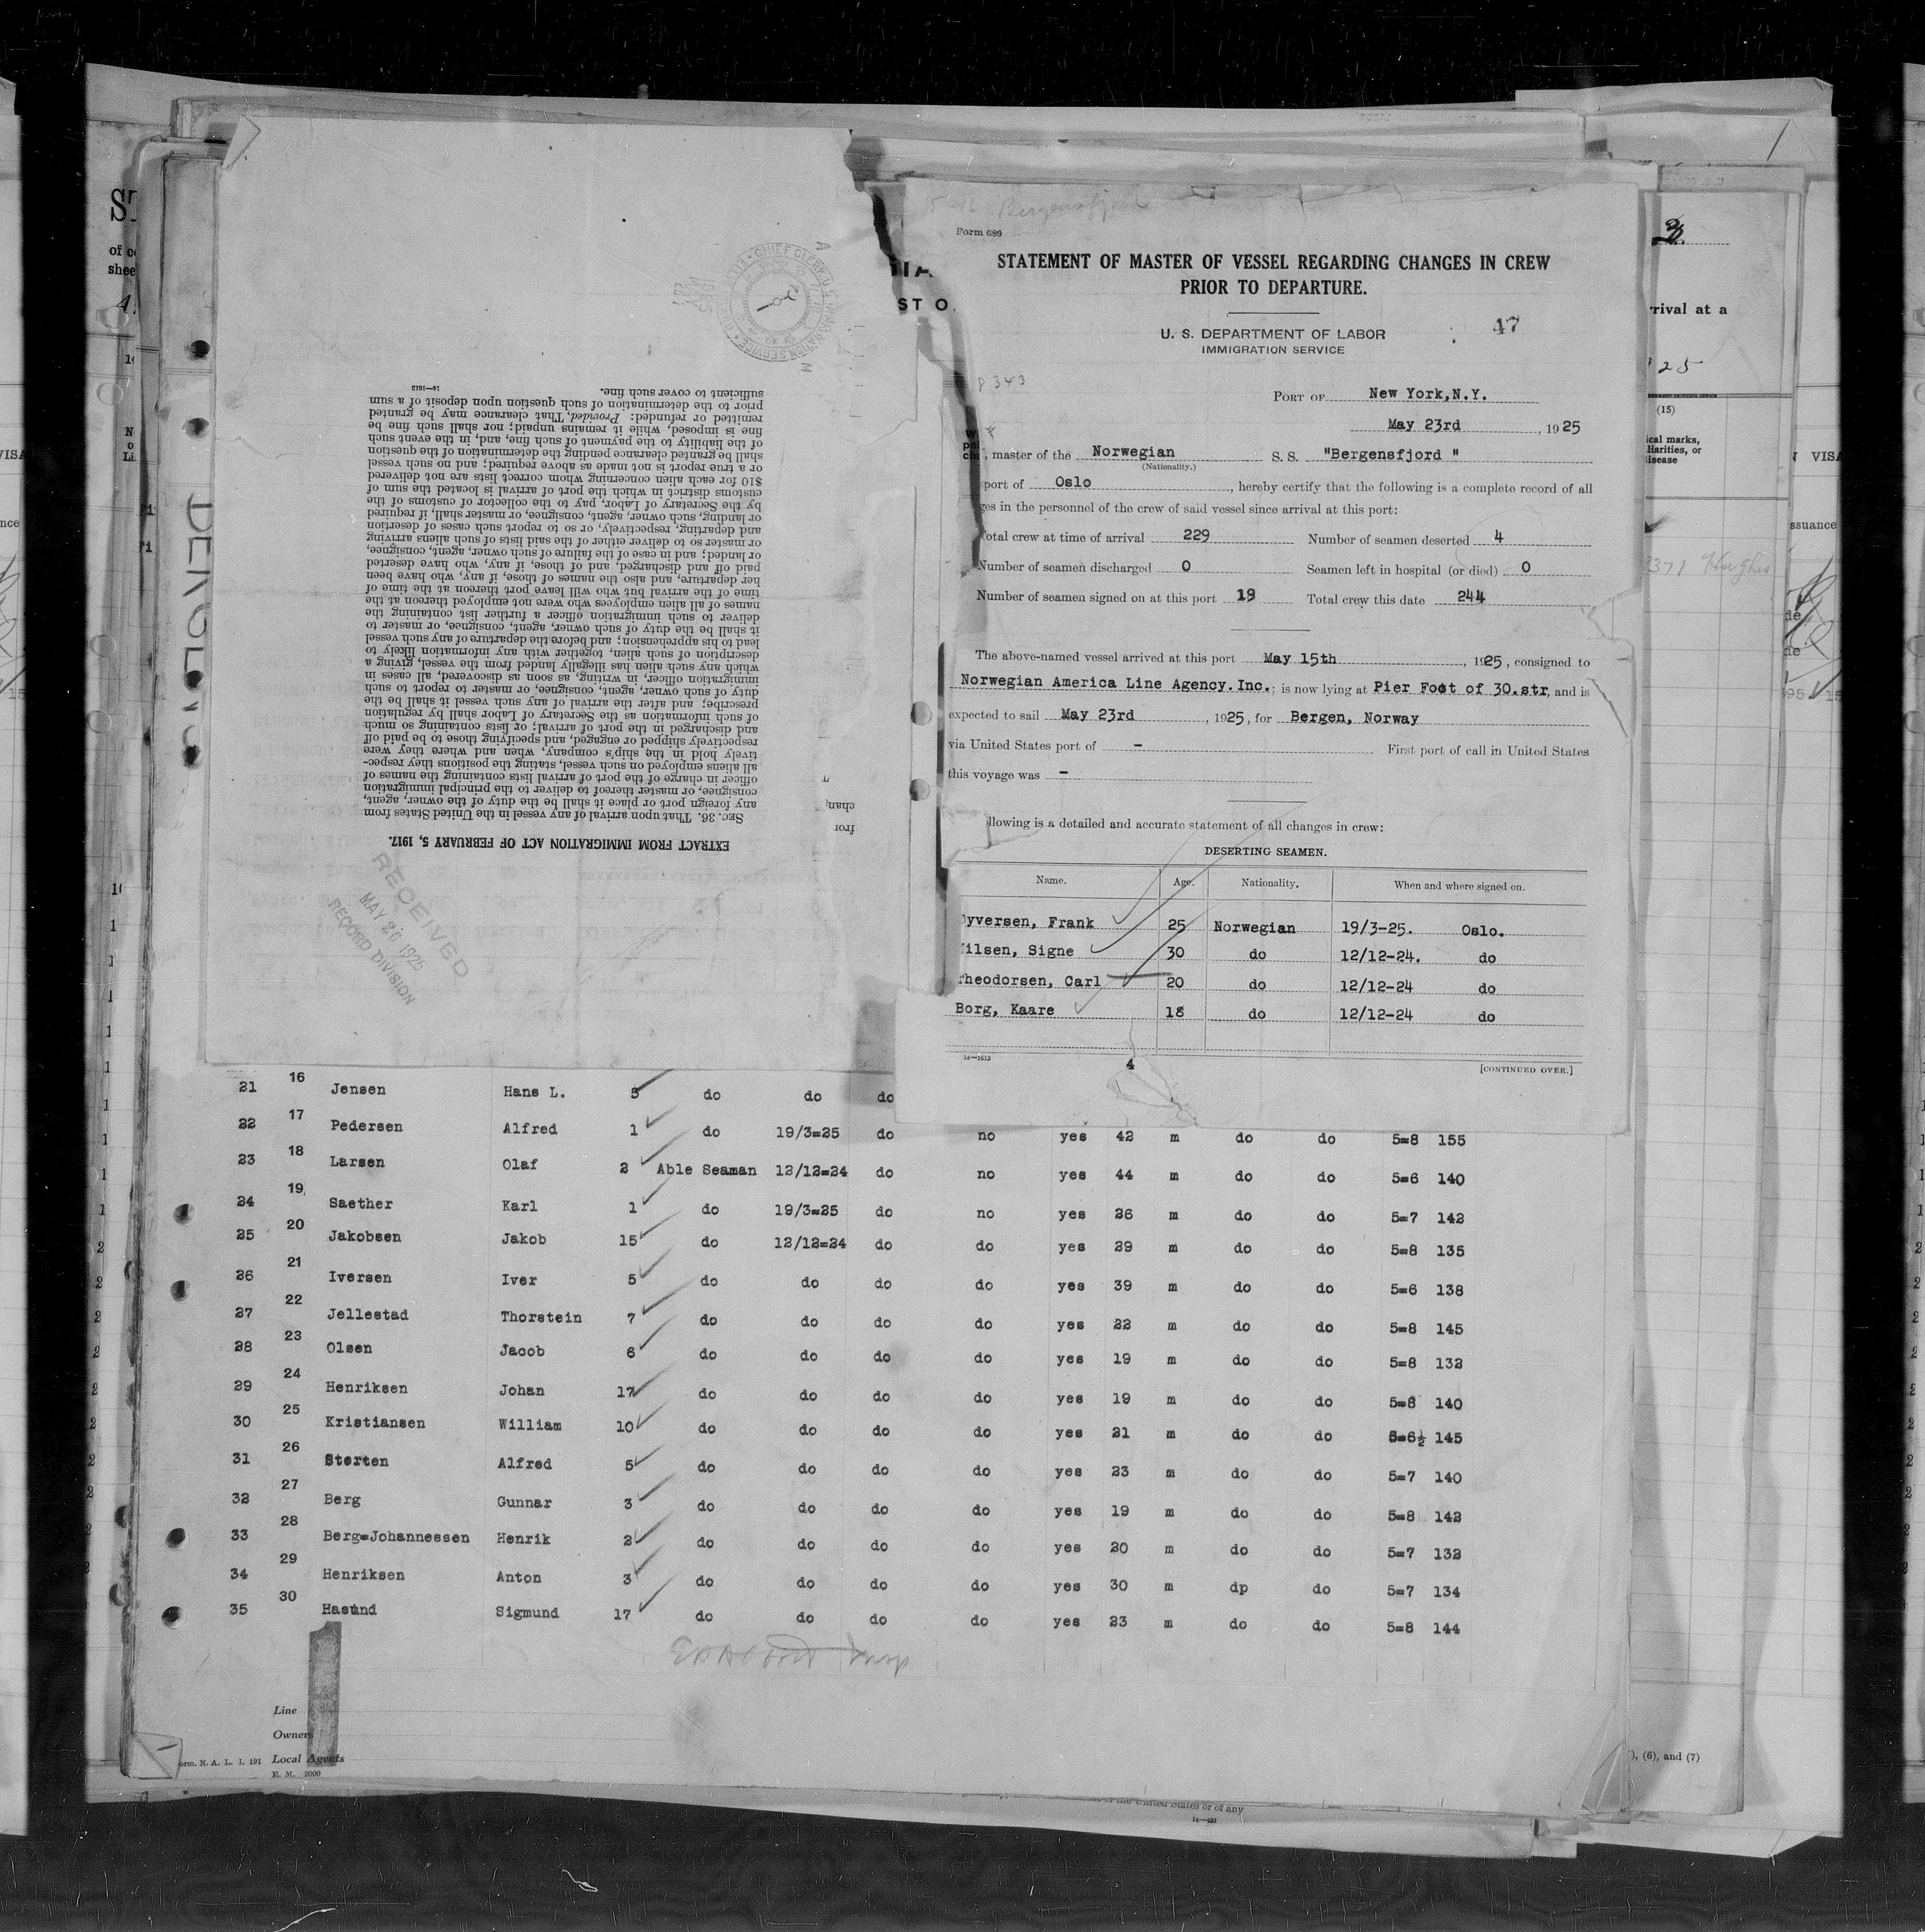 Form 689
STATEMENT OF MASTER OF VESSEL REGARDING CHANGES IN CREW
PRIOR TO DEPARTURE.
U. S. DEPARTMENT OF LABOR
IMMIGRATION SERVICE
47
8343
PORT OF New York,N.Y.
May 23rd, 1925
, master of the Norwegian S. S. "Bergensfjord "
(Nationality.)
port of Oslo, hereby certify that the following is a complete record of all
ges in the personnel of the crew of said vessel since arrival at this port:
Total crew at time of arrival 229 Number of seamen deserted 4
Number of seamen discharged 0 Seamen left in hospital (or died) 0
Number of seamen signed on at this port 19 Total crew this date 244
The above-named vessel arrived at this port May 15th, 1925, consigned to
Norwegian America Line Agency.Inc.; is now lying at Pier Foot of 30.str, and is
expected to sail May 23rd, 1925, for Bergen, Norway
via United States port of - First port of call in United States
this voyage was -
llowing is a detailed and accurate statement of all changes in crew:
DESERTING SEAMEN.
Name. Age. Nationality. When and where signed on.
yversen, Frank 25 Norwegian 19/3-25. Oslo.
ilsen, Signe 30 do 12/12-24. do
heodorsen, Carl 20 do 12/12-24 do
Borg, Kaare 18 do 12/12-24 do
14—1613
4
[CONTINUED OVER.]
EXTRACT FROM IMMIGRATION ACT OF FEBRUARY 5, 1917.
SEC. 36. That upon arrival of any vessel in the United States from
any foreign port or place it shall be the duty of the owner, agent,
consignee, or master thereof to deliver to the principal immigration
officer in charge of the port of arrival lists containing the names of
all aliens employed on such vessel, stating the positions they respec-
tively hold in the ship's company, when and where they were
respectively shipped or engaged, and specifying those to be paid off
and discharged in the port of arrival; or lists containing so much
of such information as the Secretary of Labor shall by regulation
prescribe; and after the arrival of any such vessel it shall be the
duty of such owner, agent, consignee, or master to report to such
immigration officer, in writing, as soon as discovered, all cases in
which any such alien has illegally landed from the vessel, giving a
description of such alien, together with any information likely to
lead to his apprehension; and before the departure of any such vessel
it shall be the duty of such owner, agent, consignee, or master to
deliver to such immigration officer a further list containing the
names of all alien employees who were not employed thereon at the
time of the arrival but who will leave port thereon at the time of
her departure, and also the names of those, if any, who have been
paid off and discharged, and of those, if any, who have deserted
or landed; and in case of the failure of such owner, agent, consignee,
or master so to deliver either of the said lists of such aliens arriving
and departing, respectively, or so to report such cases of desertion
or landing, such owner, agent, consignee, or master shall, if required
by the Secretary of Labor, pay to the collector of customs of the
customs district in which the port of arrival is located the sum of
$10 for each alien concerning whom correct lists are not delivered
or a true report is not made as above required; and no such vessel
shall be granted clearance pending the determination of the question
of the liability to the payment of such fine, and, in the event such
fine is imposed, while it remains unpaid; nor shall such fine be
remitted or refunded: Provided, That clearance may be granted
prior to the determination of such question upon deposit of a sum
sufficient to cover such fine.
14—1613
RECEIVED
MAY 26 1925
RECORD DIVISION
21 16 Jensen Hans L. 5 do do do
22 17 Pedersen Alfred 1 do 19/3=25 do no yes 42 m do do 5=8 155
23 18 Larsen Olaf 2 Able Seaman 12/12=24 do no yes 44 m do do 5=6 140
24 19 Saether Karl 1 do 19/3=25 do no yes 26 m do do 5=7 142
25 20 Jakobsen Jakob 15 do 12/12=24 do do yes 29 m do do 5=8 135
26 21 Iversen Iver 5 do do do do yes 39 m do do 5=6 138
27 22 Jellestad Thorstein 7 do do do do yes 22 m do do 5=8 145
28 23 Olsen Jacob 6 do do do do yes 19 m do do 5=8 132
29 24 Henriksen Johan 17 do do do do yes 19 m do do 5=8 140
30 25 Kristiansen William 10 do do do do yes 21 m do do 5=6½ 145
31 26 Sterten Alfred 5 do do do do yes 23 m do do 5=7 140
32 27 Berg Gunnar 3 do do do do yes 19 m do do 5=8 142
33 28 Berg=Johannessen Henrik 2 do do do do yes 20 m do do 5=7 132
34 29 Henriksen Anton 3 do do do do yes 30 m dp do 5=7 134
35 30 Hasund Sigmund 17 do do do do yes 23 m do do 5=8 144
Line
Owners
Local Agents
orm. N. A. L. I. 191
E. M. 2000
rrival at a
25
(15)
ical marks,
liarities, or
disease
371 Hughes
VISA
ssuance
), (6), and (7)
of the United States or of any